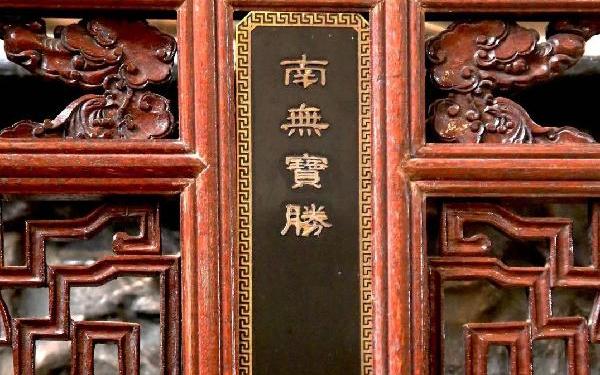 南無寶勝